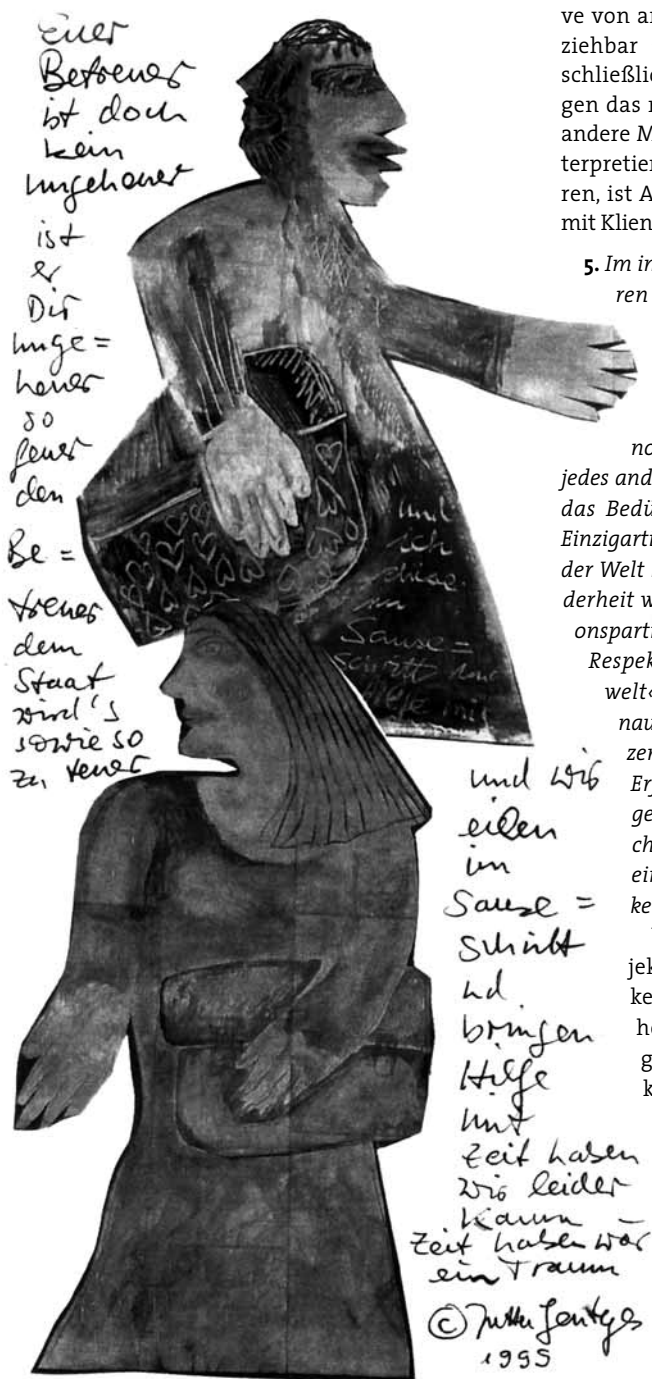 Euer
Betreuer
ist doch
kein
Ungeheuer
ist
er
Dir
unge=
heuer
so
feuer
den
Be=
treuer
dem
Staat
wird's
sowie so
zu teuer
und
ich
düse
im
Sause=
schritt und
Hilfe mit
und wir
eilen
im
Sause=
schritt
und
bringen
Hilfe
mit
Zeit haben
wir leider
kaum
Zeit haben wär
ein Traum
© Jutta Jentges
1995
ve von an
ziehbar
schließlic
gen das r
andere M
terpretier
ren, ist A
mit Klien
5. Im in
ren
no
jedes and
das Bedü
Einzigarti
der Welt
derheit w
onspart
Respek
welt‹
nau
zer
Erf
ge
ch
ein
ke
jek
ke
he
g
k